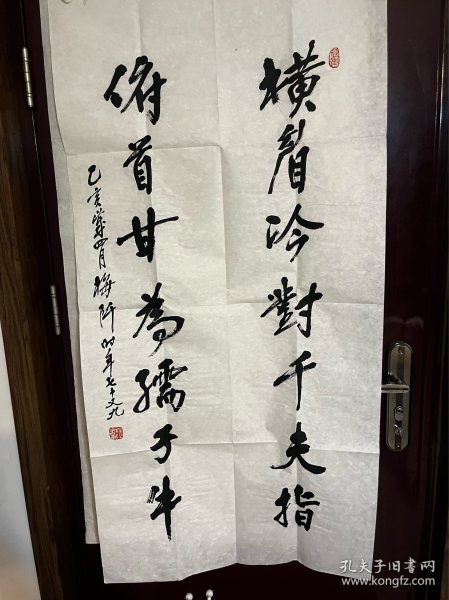 橫眉冷對千夫指
俯首甘為孺子牛
乙亥歲四月梅阡时年七十又九
孔夫子旧书网
www.kongfz.com